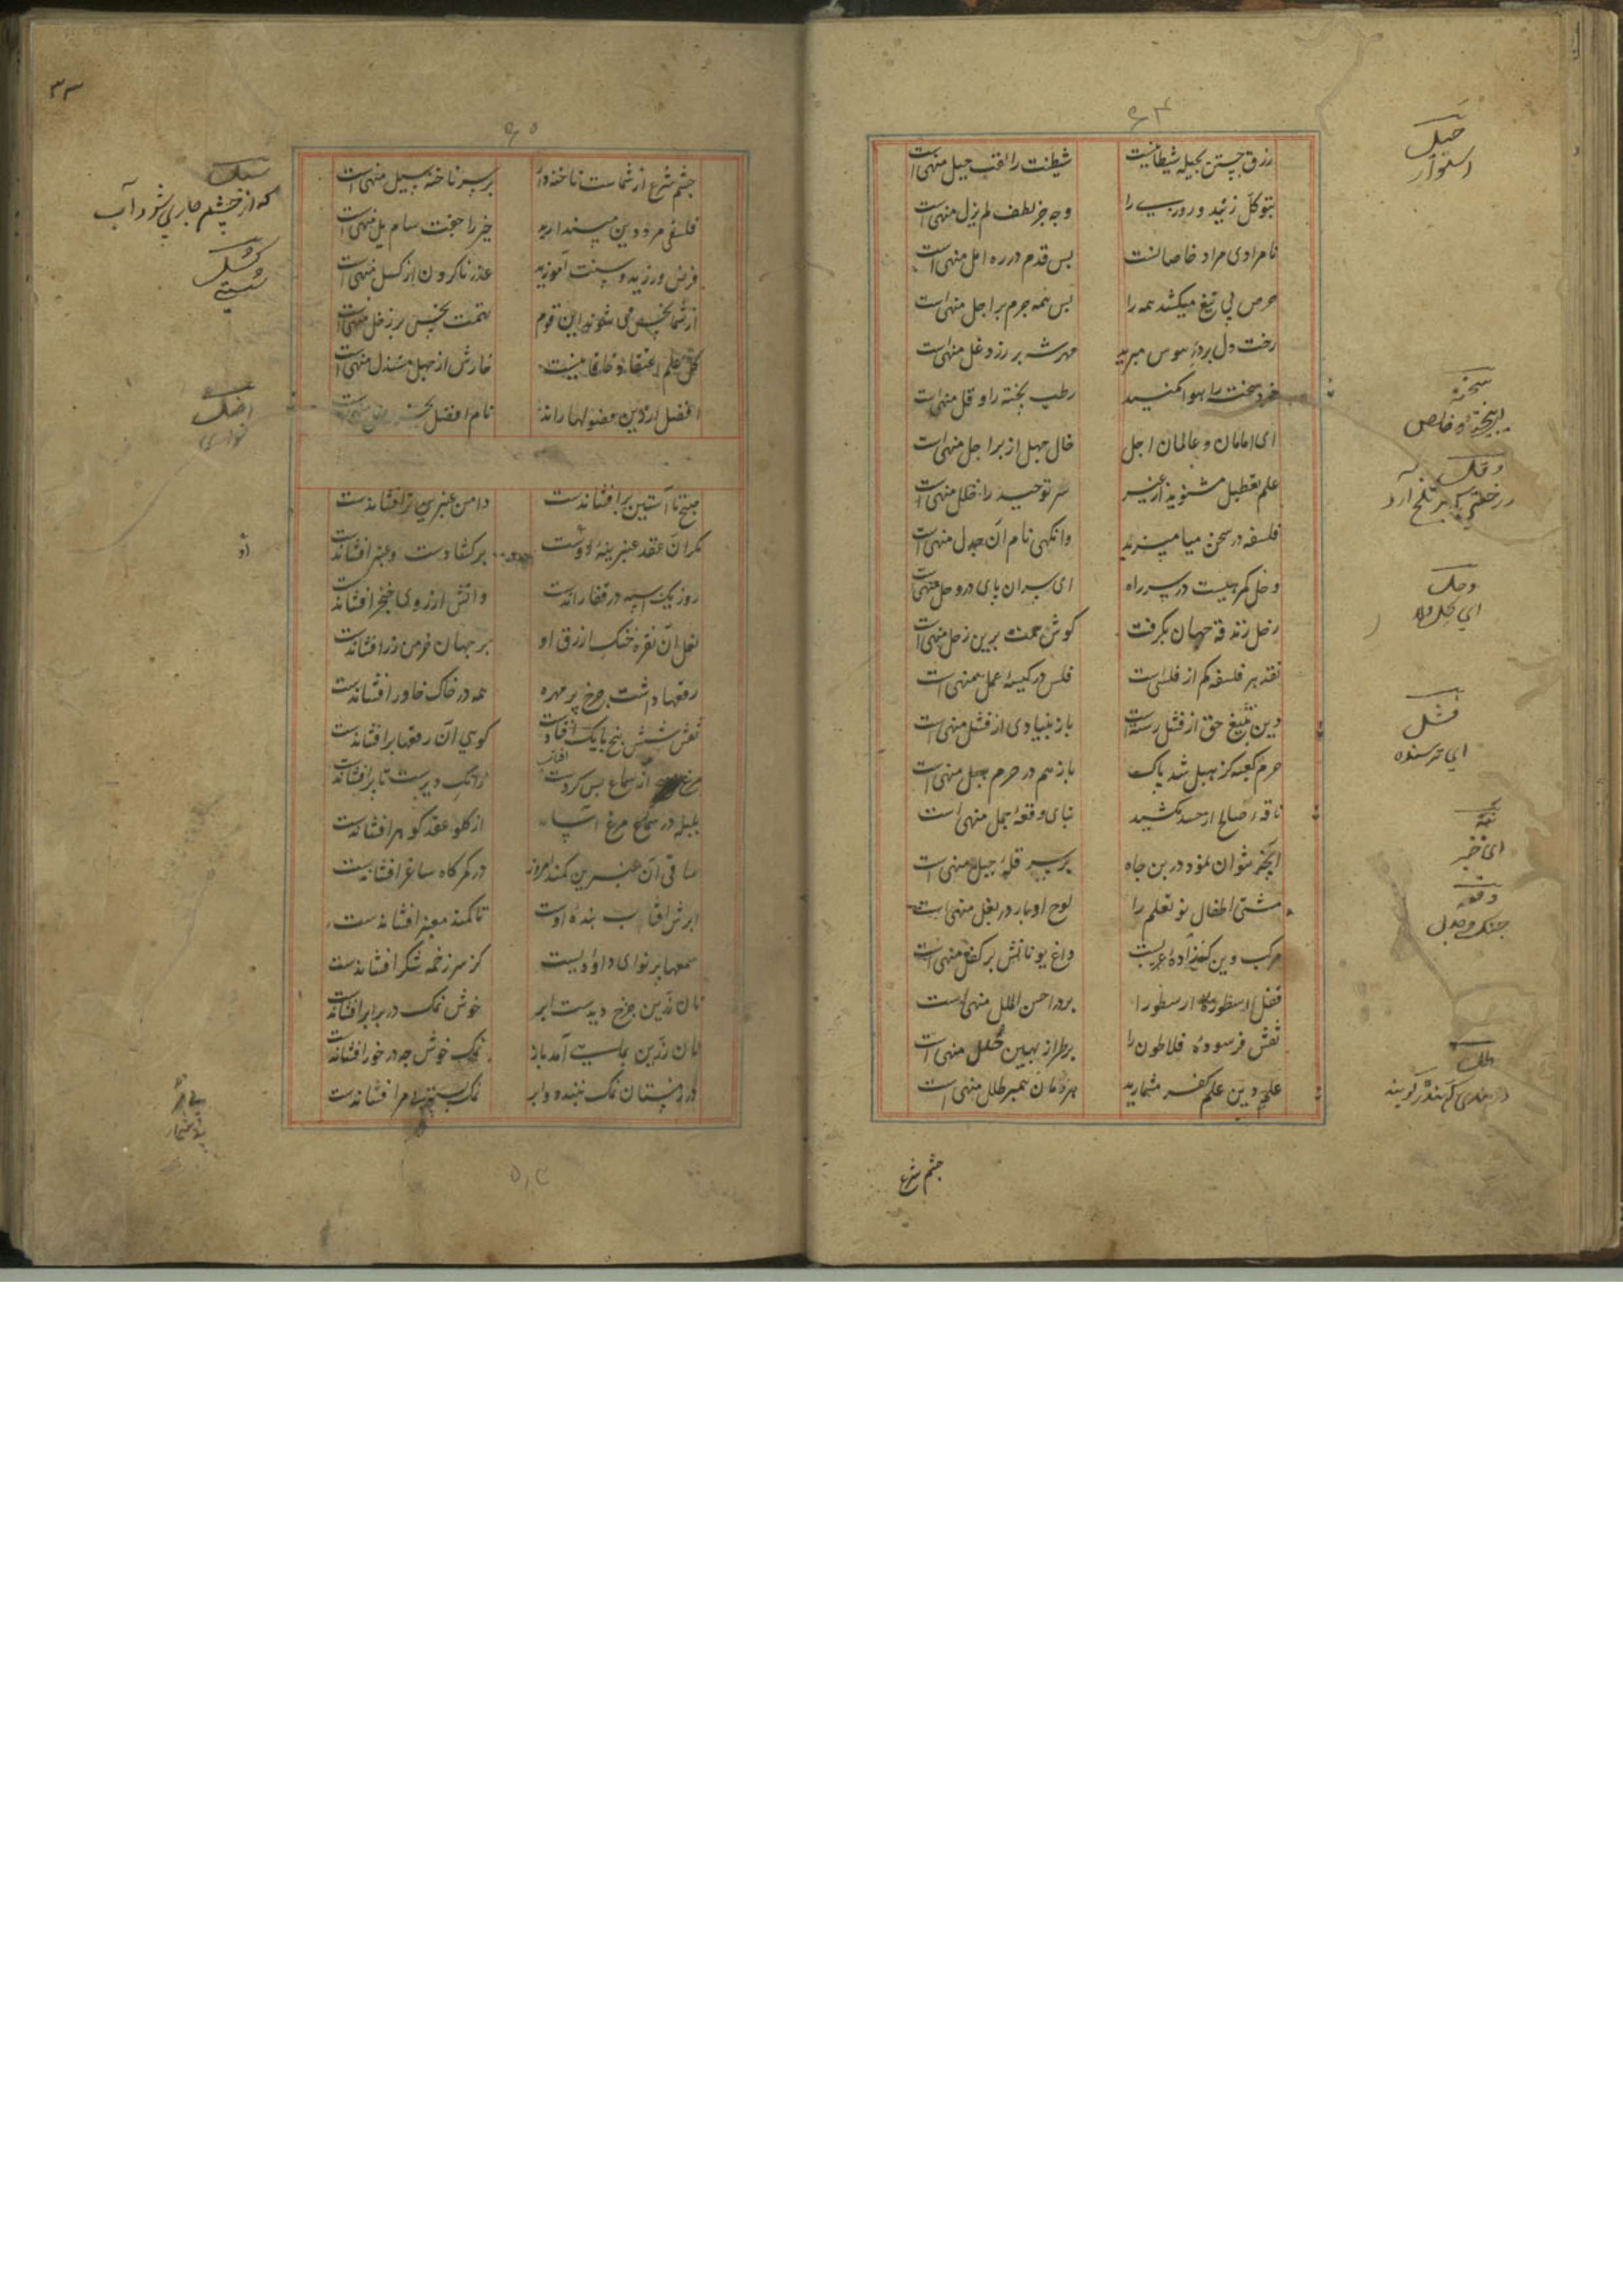 ۶۴
رزق جستن بحیله شیطانیست شیطنت را لقب حیل منهی است
بتوکل زئید و روزی را وجه جز لطف لم یزل منهی است
نامرادی مراد خاصانست پس قدم در ره امل منهی است
حرص بی تیغ میکشد همه را پس همه جرم بر اجل منهی است
رخت دل بر در هوس مبرید مهرش بر رزد غل منهی است
خرد سخت را هوا مکنید رطب پخته را وقل منهی است
ای امامان و عالمان اجل خال جهل از بر اجل منهی است
علم تعطیل مشنوید از غیر سر توحید را خلل منهی است
فلسفه در سخن میامیزید وانکهی نام آن جدل منهی است
وحل کمرهیست در سر راه ای سران پای در وحل منهی است
زحل زندقه جهان بکرفت کوش همت برین زحل منهی است
نقد هر فلسفه کم از فلسی است فلس در کیسهٔ عمل منهی است
دین بتیغ حق از فشل رسته است باز بنیادی از فشل منهی است
حرم کعبه کز هبل شد پاک باز هم در حرم هبل منهی است
ناقهٔ صالح از حسد مکشید نبای وقعهٔ جمل منهی است
انچه نتوان نمود در بن چاه بر سر قلهٔ جبل منهی است
مشتی اطفال نو تعلم را لوح ادبار در بغل منهی است
مرکب دین که زادهٔ عربیست داغ یونانش بر کفل منهی است
قفل اسطورهٔ ارسطو را بر در احسن الملل منهی است
نقش فرسودهٔ فلاطون را بر طراز بهین حلل منهی است
علم دین علم کفر مشمارید هرمان همبر طلل منهی است
چشم شرع
حیل
استوار
سخته
وقل
وحل
ای کل و لا
فشل
ای ترسنده
ای خبر
وقعه
جنک و جدل
طلل
۳۳
۶۵
چشم شرع از شماست ناخنه دار بر سر ناخنه سبل منهی است
فلسفی مرد دین مپندارید حیز را جفت سام یل منهی است
فرض ورزید و سنت آموزید عذر ناکردن از کسل منهی است
از شما نحس می شوند این قوم تهمت نحس بر زحل منهی است
کل علم اعتقاد خاقانیست خارش از جهل مستدل منهی است
افضل ار زین فضولها راند نام افضل بجز اضل منهی است
صبح تا آستین برافشاندست دامن عنبرین تر افشاندست
مکر آن عقد عنبرینهٔ اوست برکشادست و عنبر افشاندست
روز یک اسپه در قفا راندست واتش از روی خنجر افشاندست
لعل آن نقره خنک ازرق او بر جهان خرمن زر افشاندست
رقعها داشت چرخ پر مهره همه در خاک خاور افشاندست
نقش شش پنج با یک افتادست کویی آن رقعها برافشاندست
مرغ از سماع بس کردست زانک دیرست تا پر افشاندست
بلبله در سماع مرغ آسا از کلو عقد کوهر افشاندست
ساقی آن عنبرین کمند امروز در کمرکاه ساغر افشاندست
ابرش آفتاب بندهٔ اوست تا کمند معنبر افشاندست
سمعها پر نوای داودیست کز سر زخمه شکر افشاندست
نان زرین چرخ دیدست ابر خوش نمک در برابر افشاندست
نان زرین بماهی آمد باز نمک خوش چه در خور افشاندست
در زمستان نمک نبندد و ابر نمک بسته بی مر افشاندست
سبل
که از چشم جاری شود آب
کسل
سستی
اضل